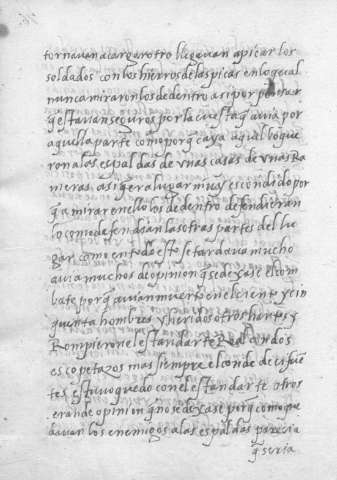 tornavan a cargar otro llegavan a picar los
soldados con los hierros de las picas en lo qual
nunca miraron los de dentro asi por pensar
q̃ estavan seguros por la cuesta q̃ avia por
aquella parte como porq̃ caya aquel boque
ron a las espaldas de unas casas de unas Ra
meras asi q̃ era lugar muy escondido por
q̃ a mirar en ello los de dentro defendieran
lo como defendian las otras partes del lu
gar como en todo esto se tardava mucho
avia muchos de opinion q̃ se dexase el com
bate porq̃ avian muerto en el ciento y cin
quenta hombres y heridos otros tantos y
Rompieron el estandarte Real en dos
es copetazos mas siempre el conde de cifuẽ
tes estuvo quedo con el estandarte otros
eran de opinion q̃ no se dexase porq̃ como que
davan los enemigos a las espaldas parecia
q̃ seria